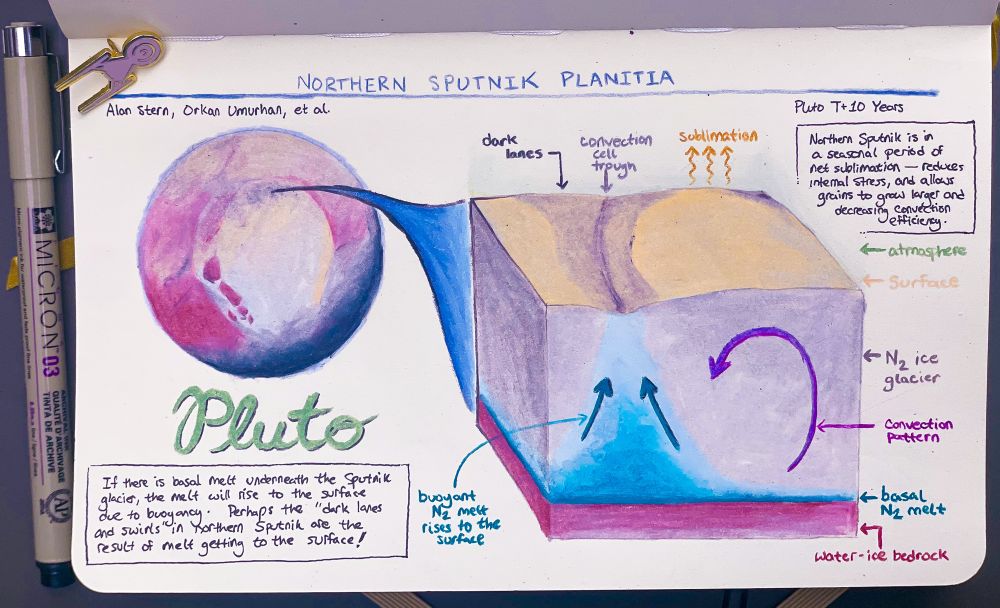 NORTHERN SPUTNIK PLANITIA
Alan Stern, Orkan Umurhan, et al.
Pluto T+10 Years
Northern Sputnik is in
a seasonal period of
net sublimation — reduces
internal stress, and allows
grains to grow larger and
decreasing convection
efficiency.
dark
lanes
convection
cell
trough
sublimation
atmosphere
Surface
N2 ice
glacier
Convection
pattern
basal
N2 melt
water-ice bedrock
buoyant
N2 melt
rises to the
surface
Pluto
If there is basal melt underneath the Sputnik
glacier, the melt will rise to the surface
due to buoyancy. Perhaps the "dark lanes
and swirls" in Northern Sputnik are the
result of melt getting to the surface!
MICRON 03
QUALITÉ D'ARCHIVAGE
TINTA DE ARCHIVE
AP